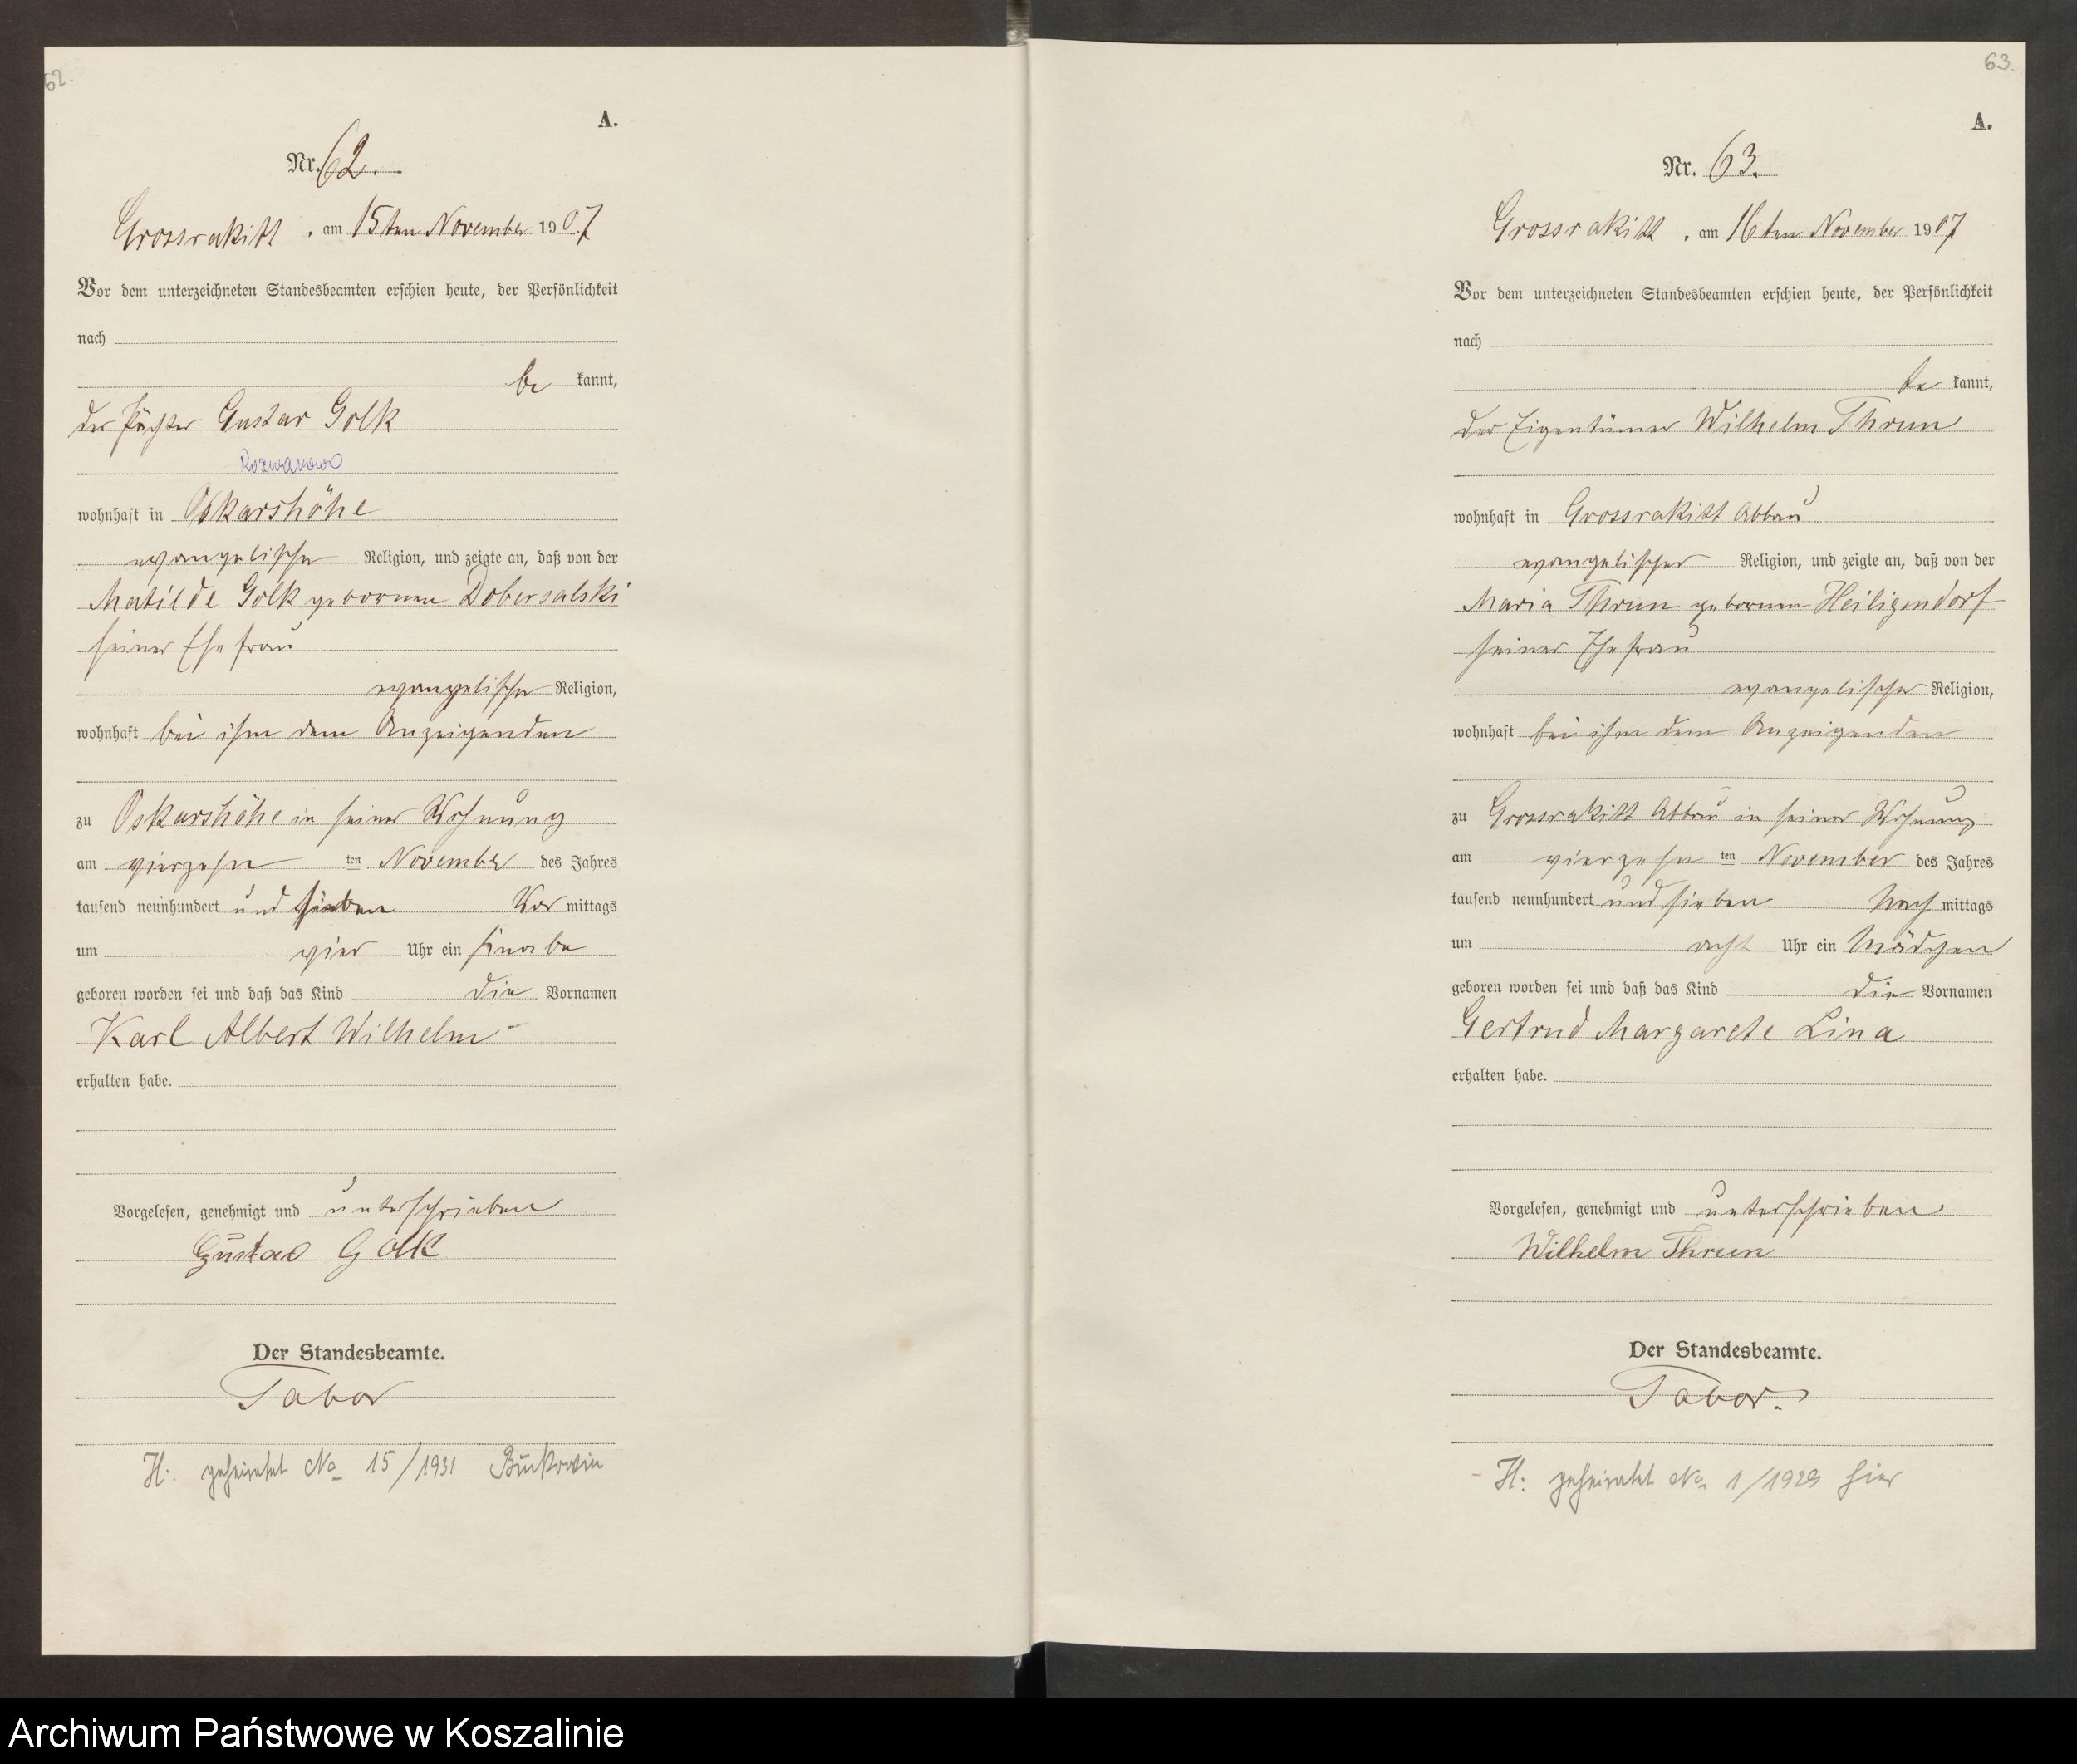 62.
A.
Nr. 62.
Grossrakitt, am 15ten November 1907
Vor dem unterzeichneten Standesbeamten erschien heute, der Persönlichkeit
nach
be kannt,
der Pächter Gustav Golk
Rozwarowo
wohnhaft in Oskarshöhe
evangelischer Religion, und zeigte an, daß von der
Matilde Golk geborenen Dobersalski
seiner Ehefrau
evangelischer Religion,
wohnhaft bei ihm dem Anzeigenden
zu Oskarshöhe in seiner Wohnung
am vierzehn ten November des Jahres
tausend neunhundert und sieben Vor mittags
um vier Uhr ein Knabe
geboren worden sei und daß das Kind die Vornamen
Karl Albert Wilhelm
erhalten habe.
Vorgelesen, genehmigt und unterschrieben
Gustav Golk
Der Standesbeamte.
Tabor
H: geheiratet No 15/1931 Buckowin
63.
A.
Nr. 63.
Grossrakitt, am 16ten November 1907
Vor dem unterzeichneten Standesbeamten erschien heute, der Persönlichkeit
nach
be kannt,
der Eigentümer Wilhelm Thrun
wohnhaft in Grossrakitt Abbau
evangelischer Religion, und zeigte an, daß von der
Maria Thrun geborenen Heiligendorf
seiner Ehefrau
evangelischer Religion,
wohnhaft bei ihm dem Anzeigenden
zu Grossrakitt Abbau in seiner Wohnung
am vierzehn ten November des Jahres
tausend neunhundert und sieben Nach mittags
um acht Uhr ein Mädchen
geboren worden sei und daß das Kind die Vornamen
Gertrud Margarete Lina
erhalten habe.
Vorgelesen, genehmigt und unterschrieben
Wilhelm Thrun
Der Standesbeamte.
Tabor.
H: geheiratet No 1/1929 hier
Archiwum Państwowe w Koszalinie